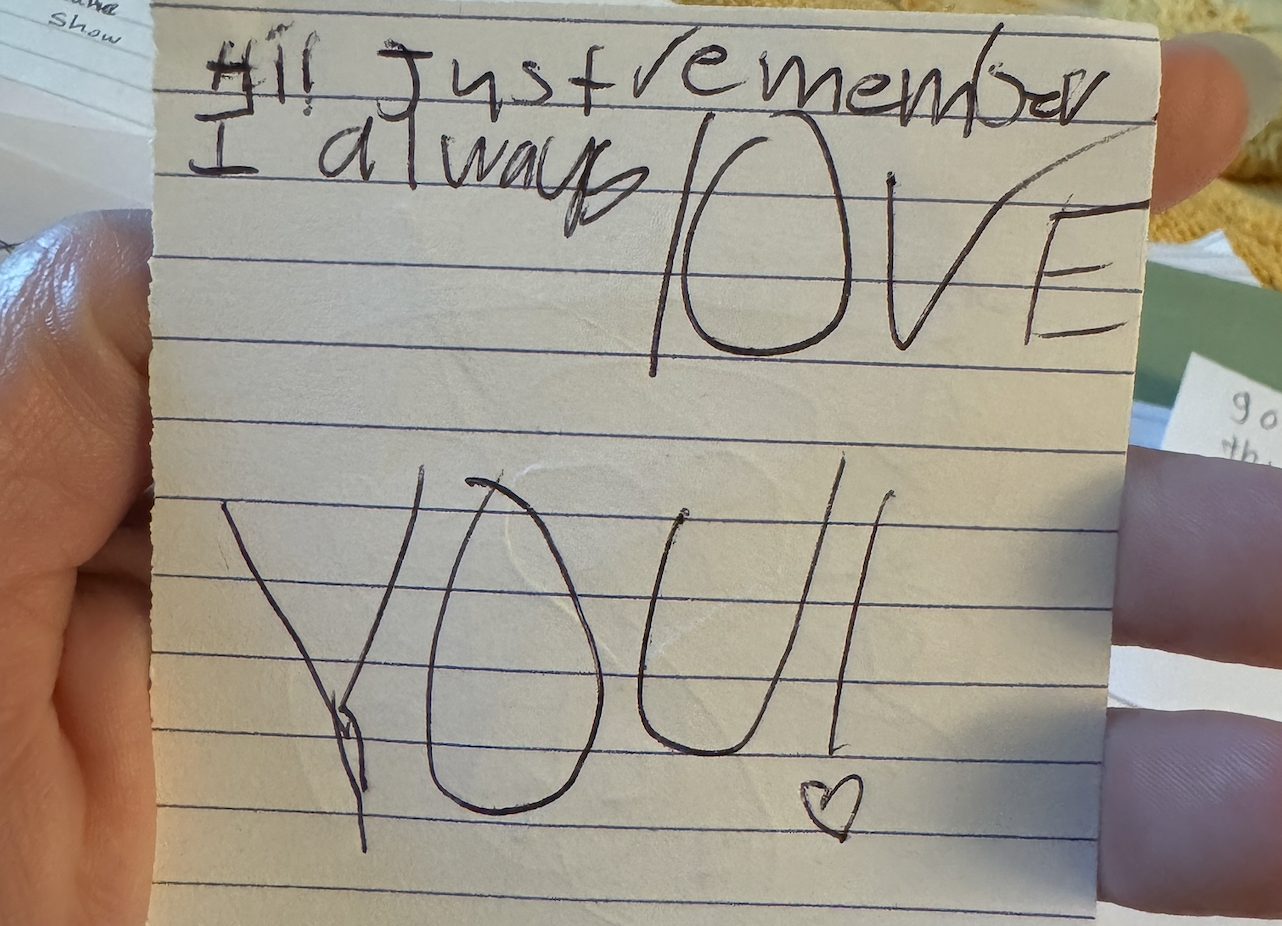 show
Hi! Just remember
I always lOVE
YOU!
go
th